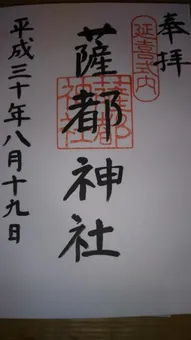 奉拝
延喜式内
薩都神社
薩都神社
平成三十年八月十九日